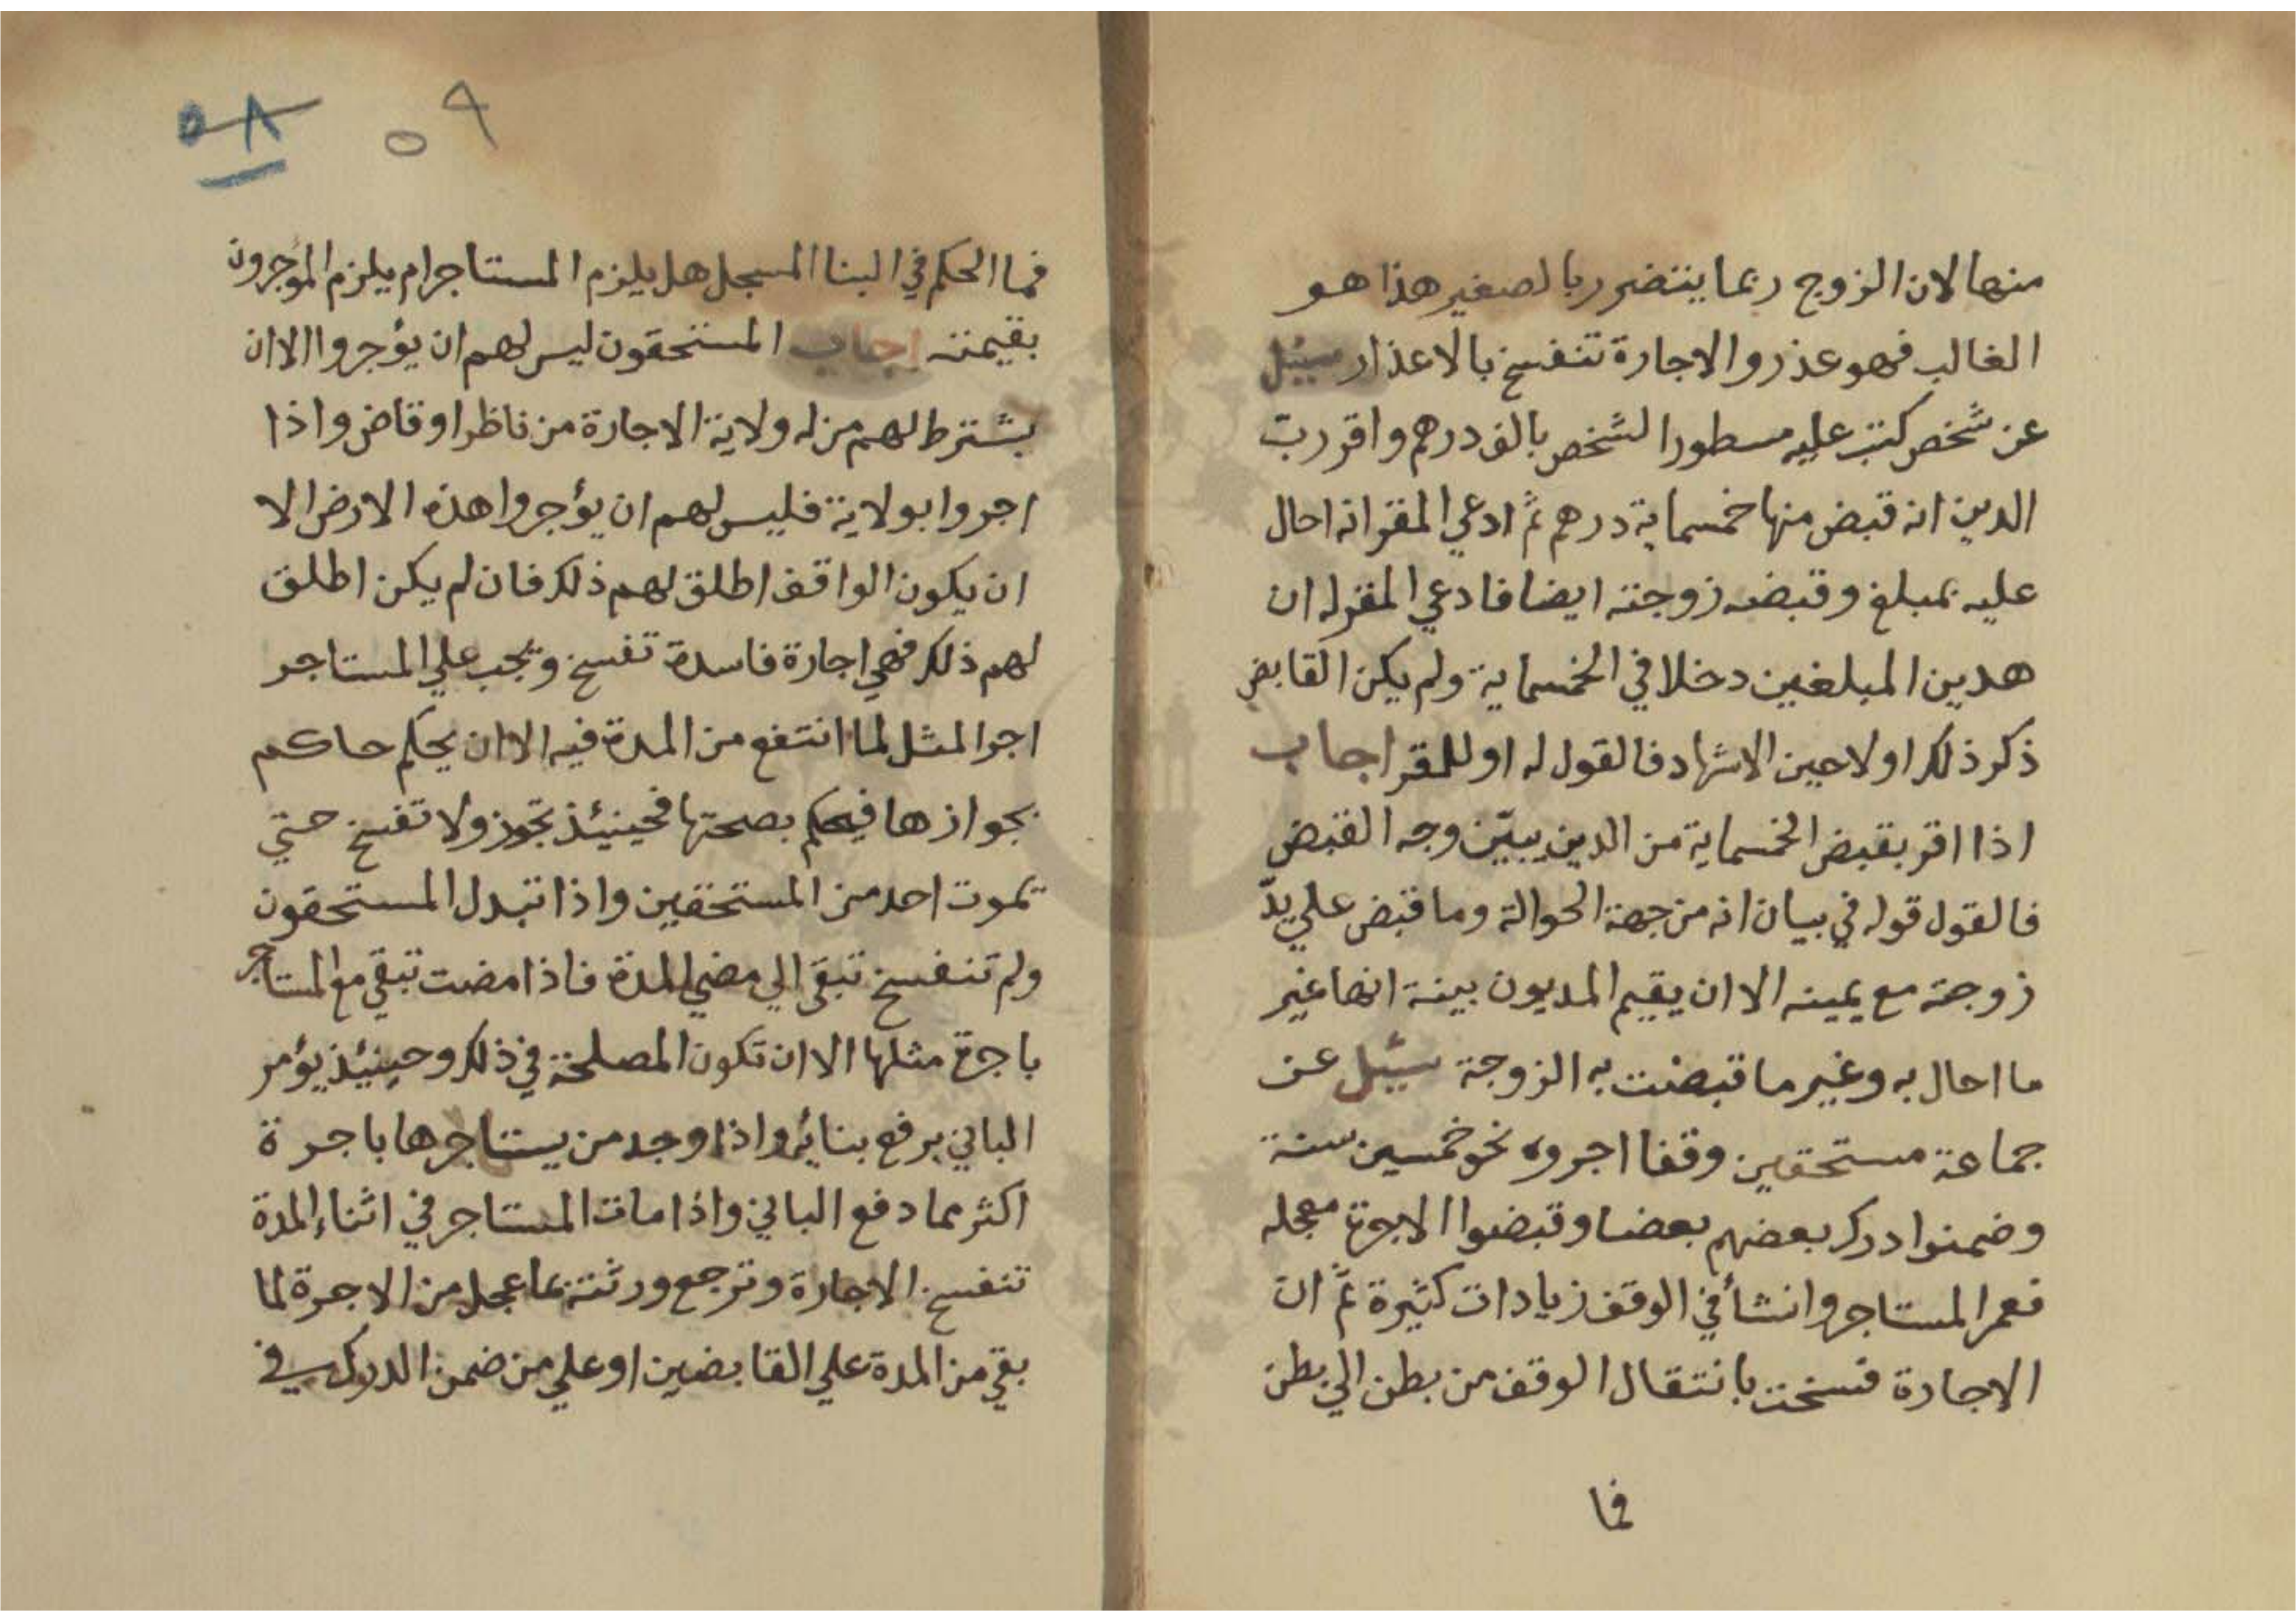 منها لان الزوج ربما يتضرر بالصغير هذا هو
الغالب فهو عذر والاجارة تنفسخ بالاعذار سئل
عن شخص كتب عليه مسطورا لشخص بالف درهم واقر رب
الدين انه قبض منها خمسماية درهم ثم ادعي المقر انه احال
عليه بمبلغ وقبضه زوجته ايضا فادعي المقر له ان
هدين المبلغين دخلا في الخمسماية ولم يكن القابض
ذكر ذلك اولا حين الاشهاد فالقول له او للمقر اجاب
اذا اقر بقبض الخمسماية من الدين يبيّن وجه القبض
فالقول قوله في بيان انه من جهة الحوالة وما قبض علي يد
زوجته مع يمينه الا ان يقيم المديون بينة انها غير
ما احال به وغير ما قبضت به الزوجة سئل عن
جماعة مستحقين وقفا اجروه نحو خمسين سنة
وضمنوا درك بعضهم بعضا وقبضوا الاجرة معجله
فعمر المستاجر وانشأ في الوقف زيادات كثيرة ثم ان
الاجارة فسخت بانتقال الوقف من بطن الي بطن
فما
٥٨ ٥٩
فما الحكم في البنا المسجل هل يلزم المستاجر ام يلزم المؤجرون
بقيمته اجاب المستحقون ليس لهم ان يؤجروا الا ان
يشترط لهم من له ولاية الاجارة من ناظر او قاض واذا
اجروا بولاية فليس لهم ان يؤجروا هذه الارض الا
ان يكون الواقف اطلق لهم ذلك فان لم يكن اطلق
لهم ذلك فهي اجارة فاسدة تفسخ ويجب علي المستاجر
اجر المثل لما انتفع من المدة فيه الا ان يحكم حاكم
بجوازها فيحكم بصحتها فحينيئذ تجوز ولا تفسخ حتي
تموت احد من المستحقين واذا تبدل المستحقون
ولم تنفسخ تبقي الي مضي المدة فاذا مضت تبقي مع المستاجر
باجرة مثلها الا ان تكون المصلحة في ذلك وحينيئذ يؤمر
الباني برفع بنائه واذا وجد من يستاجرها باجرة
اكثر مما دفع الباني واذا مات المستاجر في اثناء المدة
تنفسخ الاجارة وترجع ورثته بما عجل من الاجرة لما
بقي من المدة علي القابضين او علي من ضمن الدرك في